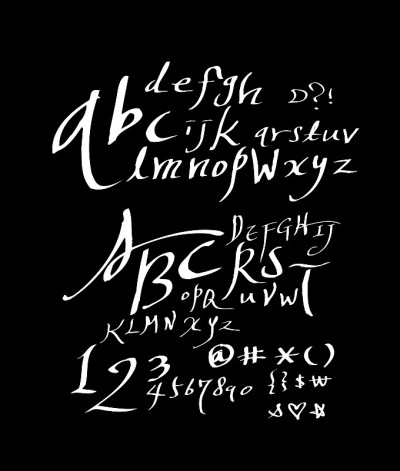 defgh D?!
abcijk qrstuv
lmnopwxyz
DEFGHIJ
ABCRST
OPQ UVW
KLMN XYZ
123 @#*()
4567890 {}$₩
☆♡☆